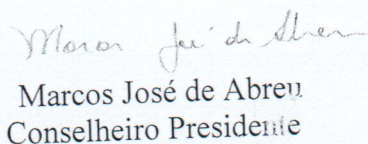 Marcos José de Abreu
Marcos José de Abreu
Conselheiro Presidente